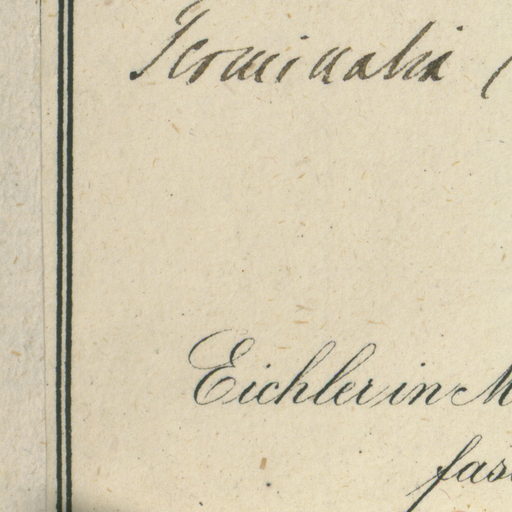 Terminalia (
Eichler in M
fas